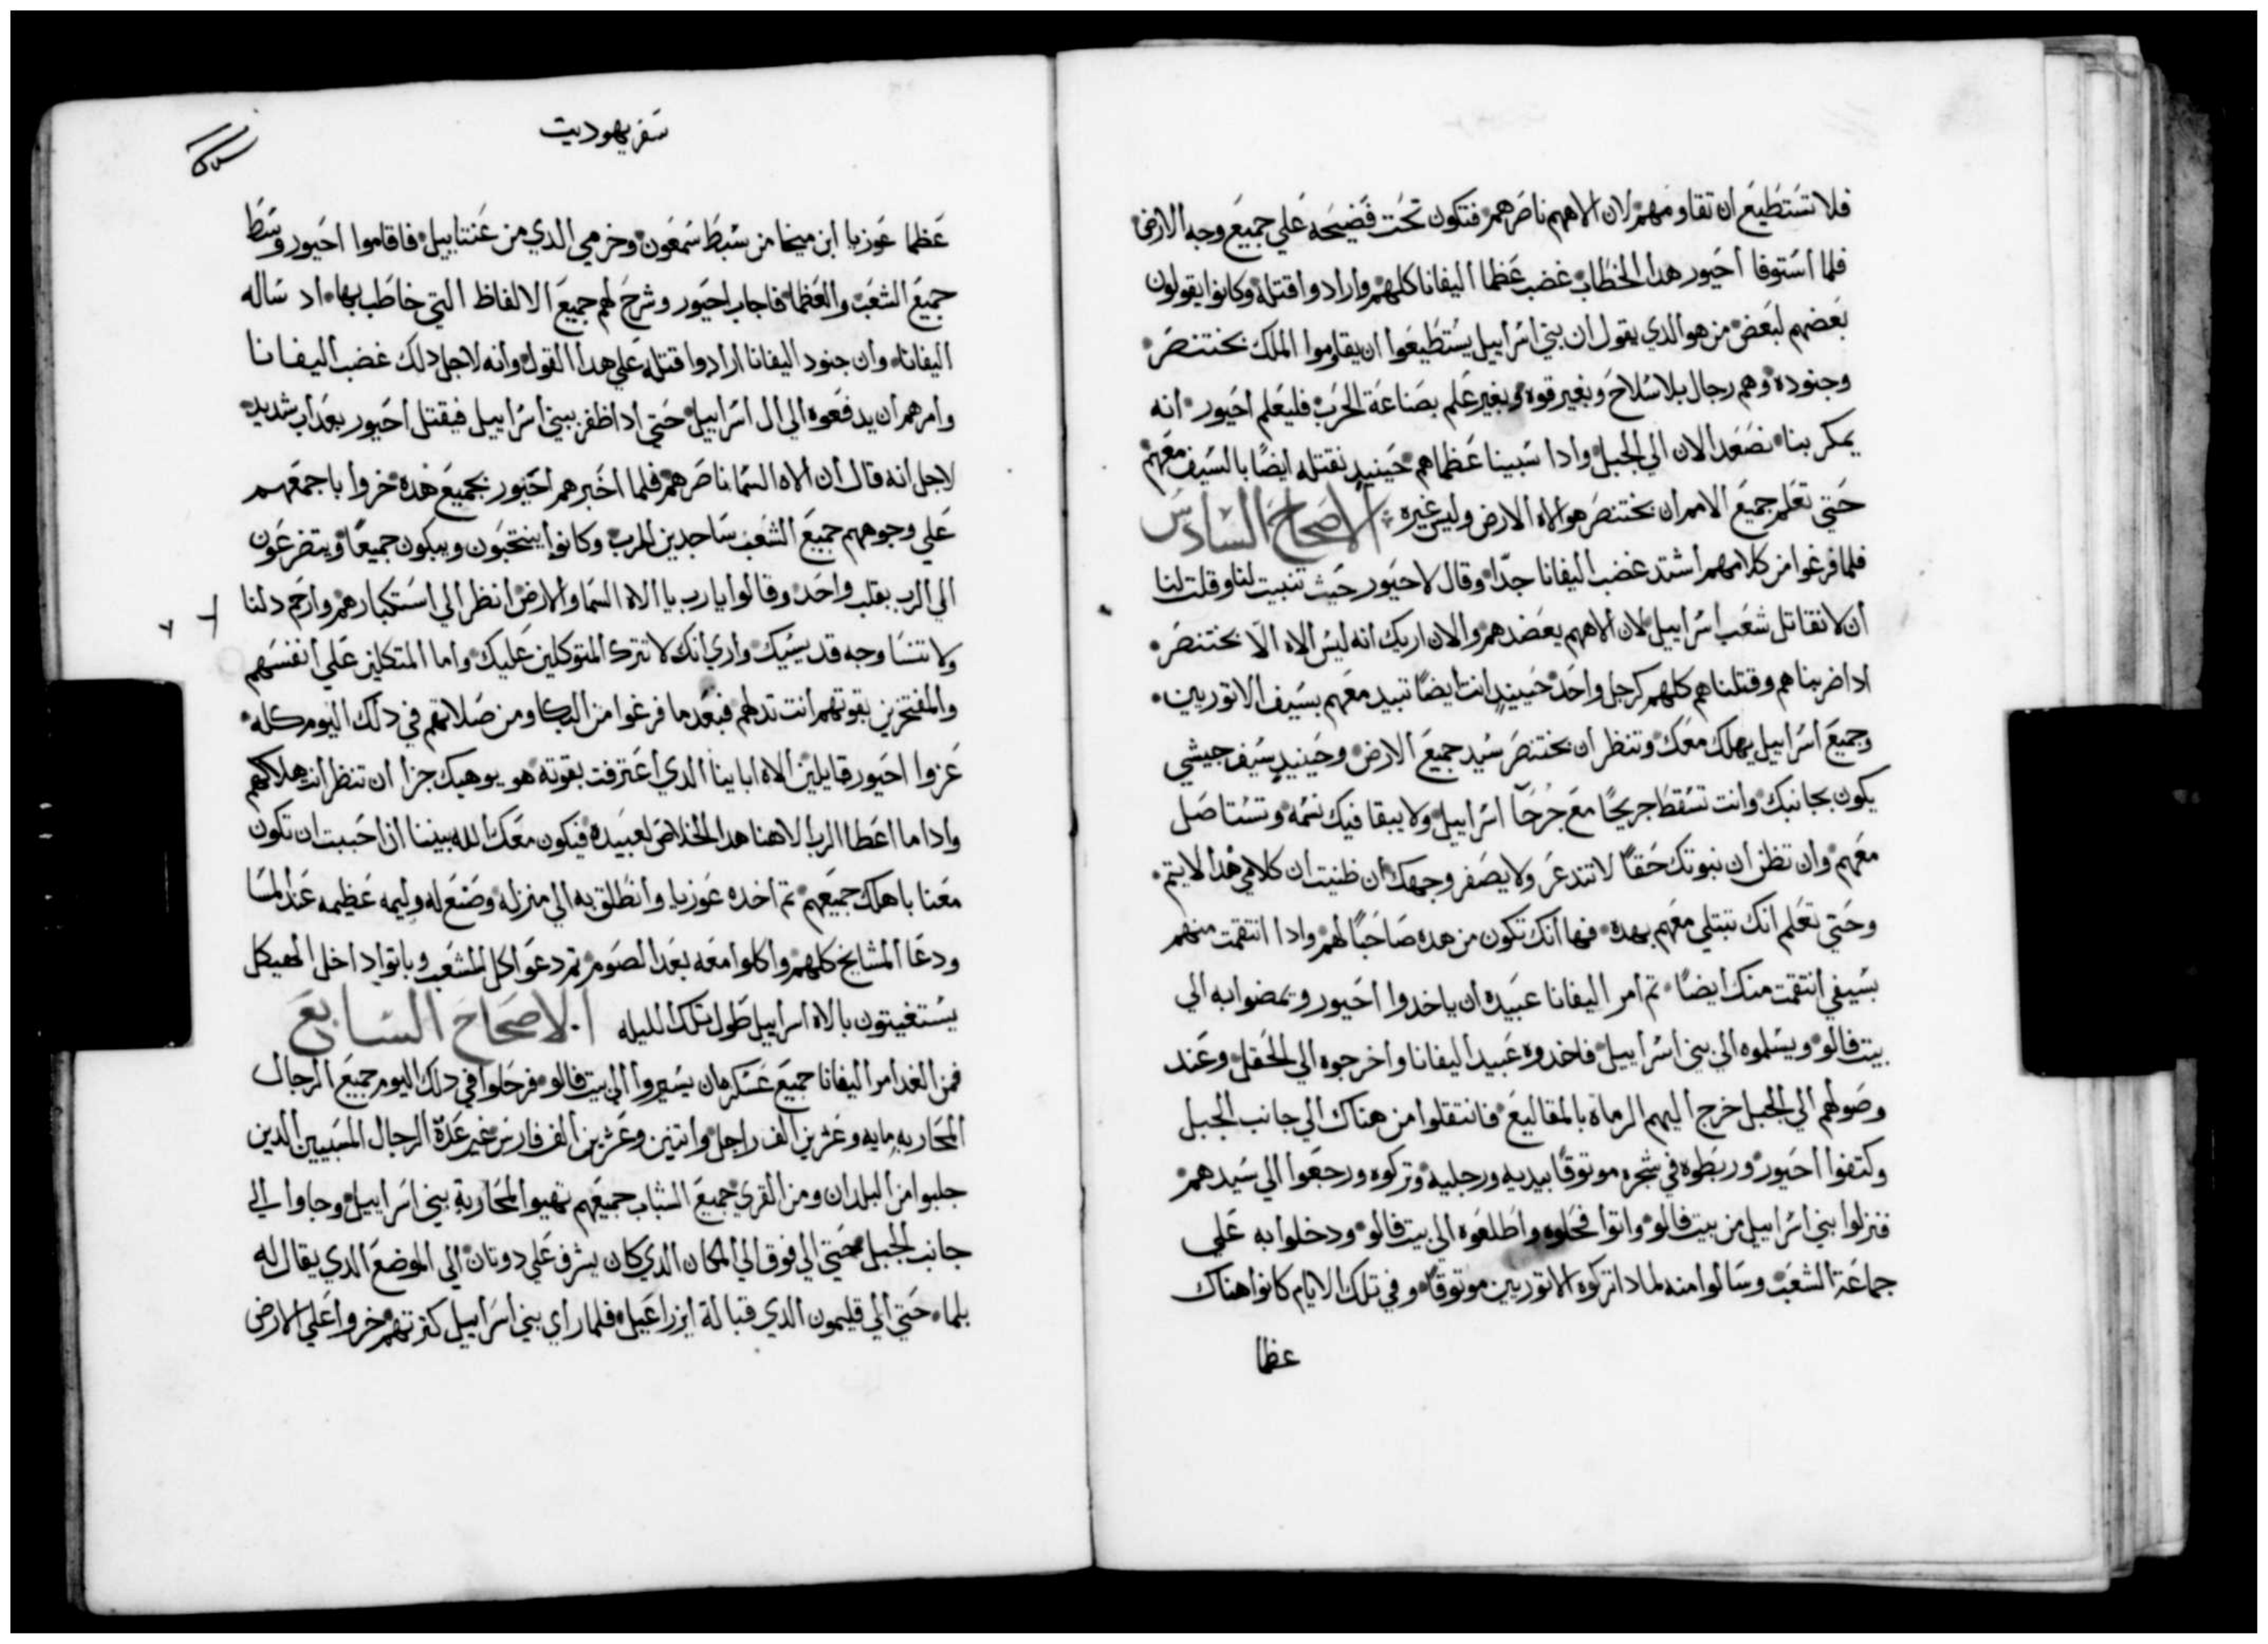 فلا تستطيع ان تقاومهم لان الاههم ناصرهم فتكون تحت فضيحه علي جميع وجه الارض
فلما استوفا احيور هدا الخطاب غضب عظما اليفانا كلهم وارادوا قتله وكانوا يقولون
بعضهم لبعض من هو الدي يقول ان بني اسراييل يستطيعوا ان يقاوموا الملك بختنصر
وجنوده وهم رجال بلا سلاح وبغير قوه وبغير علم بصناعة الحرب فليعلم احيور انه
يمكر بنا نصعد الان الي الجبل وادا سبينا عظماهم حينيد نقتله ايضًا بالسيف معهم
حتي تعلم جميع الامم ان بختنصر هو الاه الارض وليس غيره الاصحاح السادس
فلما فرغوا من كلامهم اشتد غضب اليفانا جدّا وقال لاحيور حيث تنبيت لنا وقلت لنا
ان لا نقاتل شعب اسراييل لان الاههم يعضدهم والان اريك انه ليس الاه الا بختنصر
ادا ضربناهم وقتلناهم كلهم كرجل واحد حينيدٍ انت ايضًا تبيد معهم بسيف الاتوريين
وجميع اسراييل يهلك معك وتنظر ان بختنصر سيد جميع الارض وحينيدٍ سيف جيشي
يكون بجانبك وانت تسقط جريحًا مع جُرحآ اسراييل ولا يبقا فيك نسمه وتستاصل
معهم وان تظن ان نبوتك حقًا لا تندعر ولا يصفر وجهك ان ظنيت ان كلامي هدا لا يتم
وحتي تعلم انك تبتلي معهم بهده فها انك تكون من هده صاحبًا لهم وادا انتقمت منهم
بسيفي انتقمت منك ايضًا تم امر اليفانا عبيده ان ياخدوا احيور ويمضوا به الي
بيت فالو ويسلموه الي بني اسراييل فاخدوه عبيد اليفانا واخرجوه الي الحقل وعند
وصولهم الي الجبل خرج اليهم الرماة بالمقاليع فانتقلوا من هناك الي جانب الجبل
وكتفوا احيور وربطوه في شجره موتوقًا بيديه ورجليه وتركوه ورجعوا الي سيدهم
فنزلوا بني اسراييل من بيت فالو واتوا فحلوه واطلعوه الي بيت فالو ودخلوا به علي
جماعة الشعب وسالوا منه لمادا تركوه الاتوريين موتوقًا وفي تلك الايام كانوا هناك
عظما
سفر يهوديت
عظما عوزيا ابن ميخا من سبط سمعون وخرمي الدي من عنتاييل فاقاموا احيور وسط
جميع الشعب والعظما فاجاب احيور وشرح لهم جميع الالفاظ التي خاطب بها اد ساله
اليفانا وان جنود اليفانا ارادوا قتله علي هدا القول وانه لاجل دلك غضب اليفانا
وامرهم ان يدفعوه الي ال اسراييل حتي ادا ظفر ببني اسراييل فيقتل احيور بعداب شديد
لاجل انه قال ان الاه السما ناصرهم فلما اخبرهم احيور بجميع هده خروا باجمعهم
علي وجوههم جميع الشعب ساجدين للرب وكانوا ينتحبون ويبكون جميعًا ويتضرعون
الي الرب بقلب واحد وقالوا يارب يا الاه السما والارض انظر الي استكبارهم وارحم دلنا
ولا تنسا وجه قديسيك واري انك لا تترك المتوكلين عليك واما المتكلين علي انفسهم
والمفتخرين بقوتهم انت تدلهم فبعد ما فرغوا من البكا ومن صلاتهم في دلك اليوم كله
عزوا احيور قايلين الاه اباينا الدي اعترفت بقوته هو يوهبك جزا ان تنظر انت هلاكهم
وادا ما اعطا الرب الاهنا هدا الخلاص لعبيده فيكون معك الله بيننا ادا حببت ان تكون
معنا باهلك جميعهم تم اخده عوزيا وانطلق به الي منزله وصنع له وليمه عظيمه عند المسا
ودعا المشايخ كلهم واكلوا معه بعد الصوم تم دعوا كل الشعب وباتوا داخل الهيكل
يستغيتون بالاه اسراييل طول تلك الليله الاصحاح السابع
فمن الغد امر اليفانا جميع عسكره ان يسيروا الي بيت فالو فرحلوا في دلك اليوم جميع الرجال
المحاربه مايه وعشرين الف راجل واتنين وعشرين الف فارس غير عدة الرجال المسبيين الدين
جلبوا من البلدان ومن القري جميع الشباب جميعهم تهيوا لمحاربة بني اسراييل وجاوا الي
جانب الجبل حتي الي فوق الي المكان الدي كان يشرف علي دوتان الي الموضع الدي يقال له
بلما حتي الي قليمون الدي قبالة ايزراعيل فلما راي بني اسراييل كترتهم خروا علي الارض